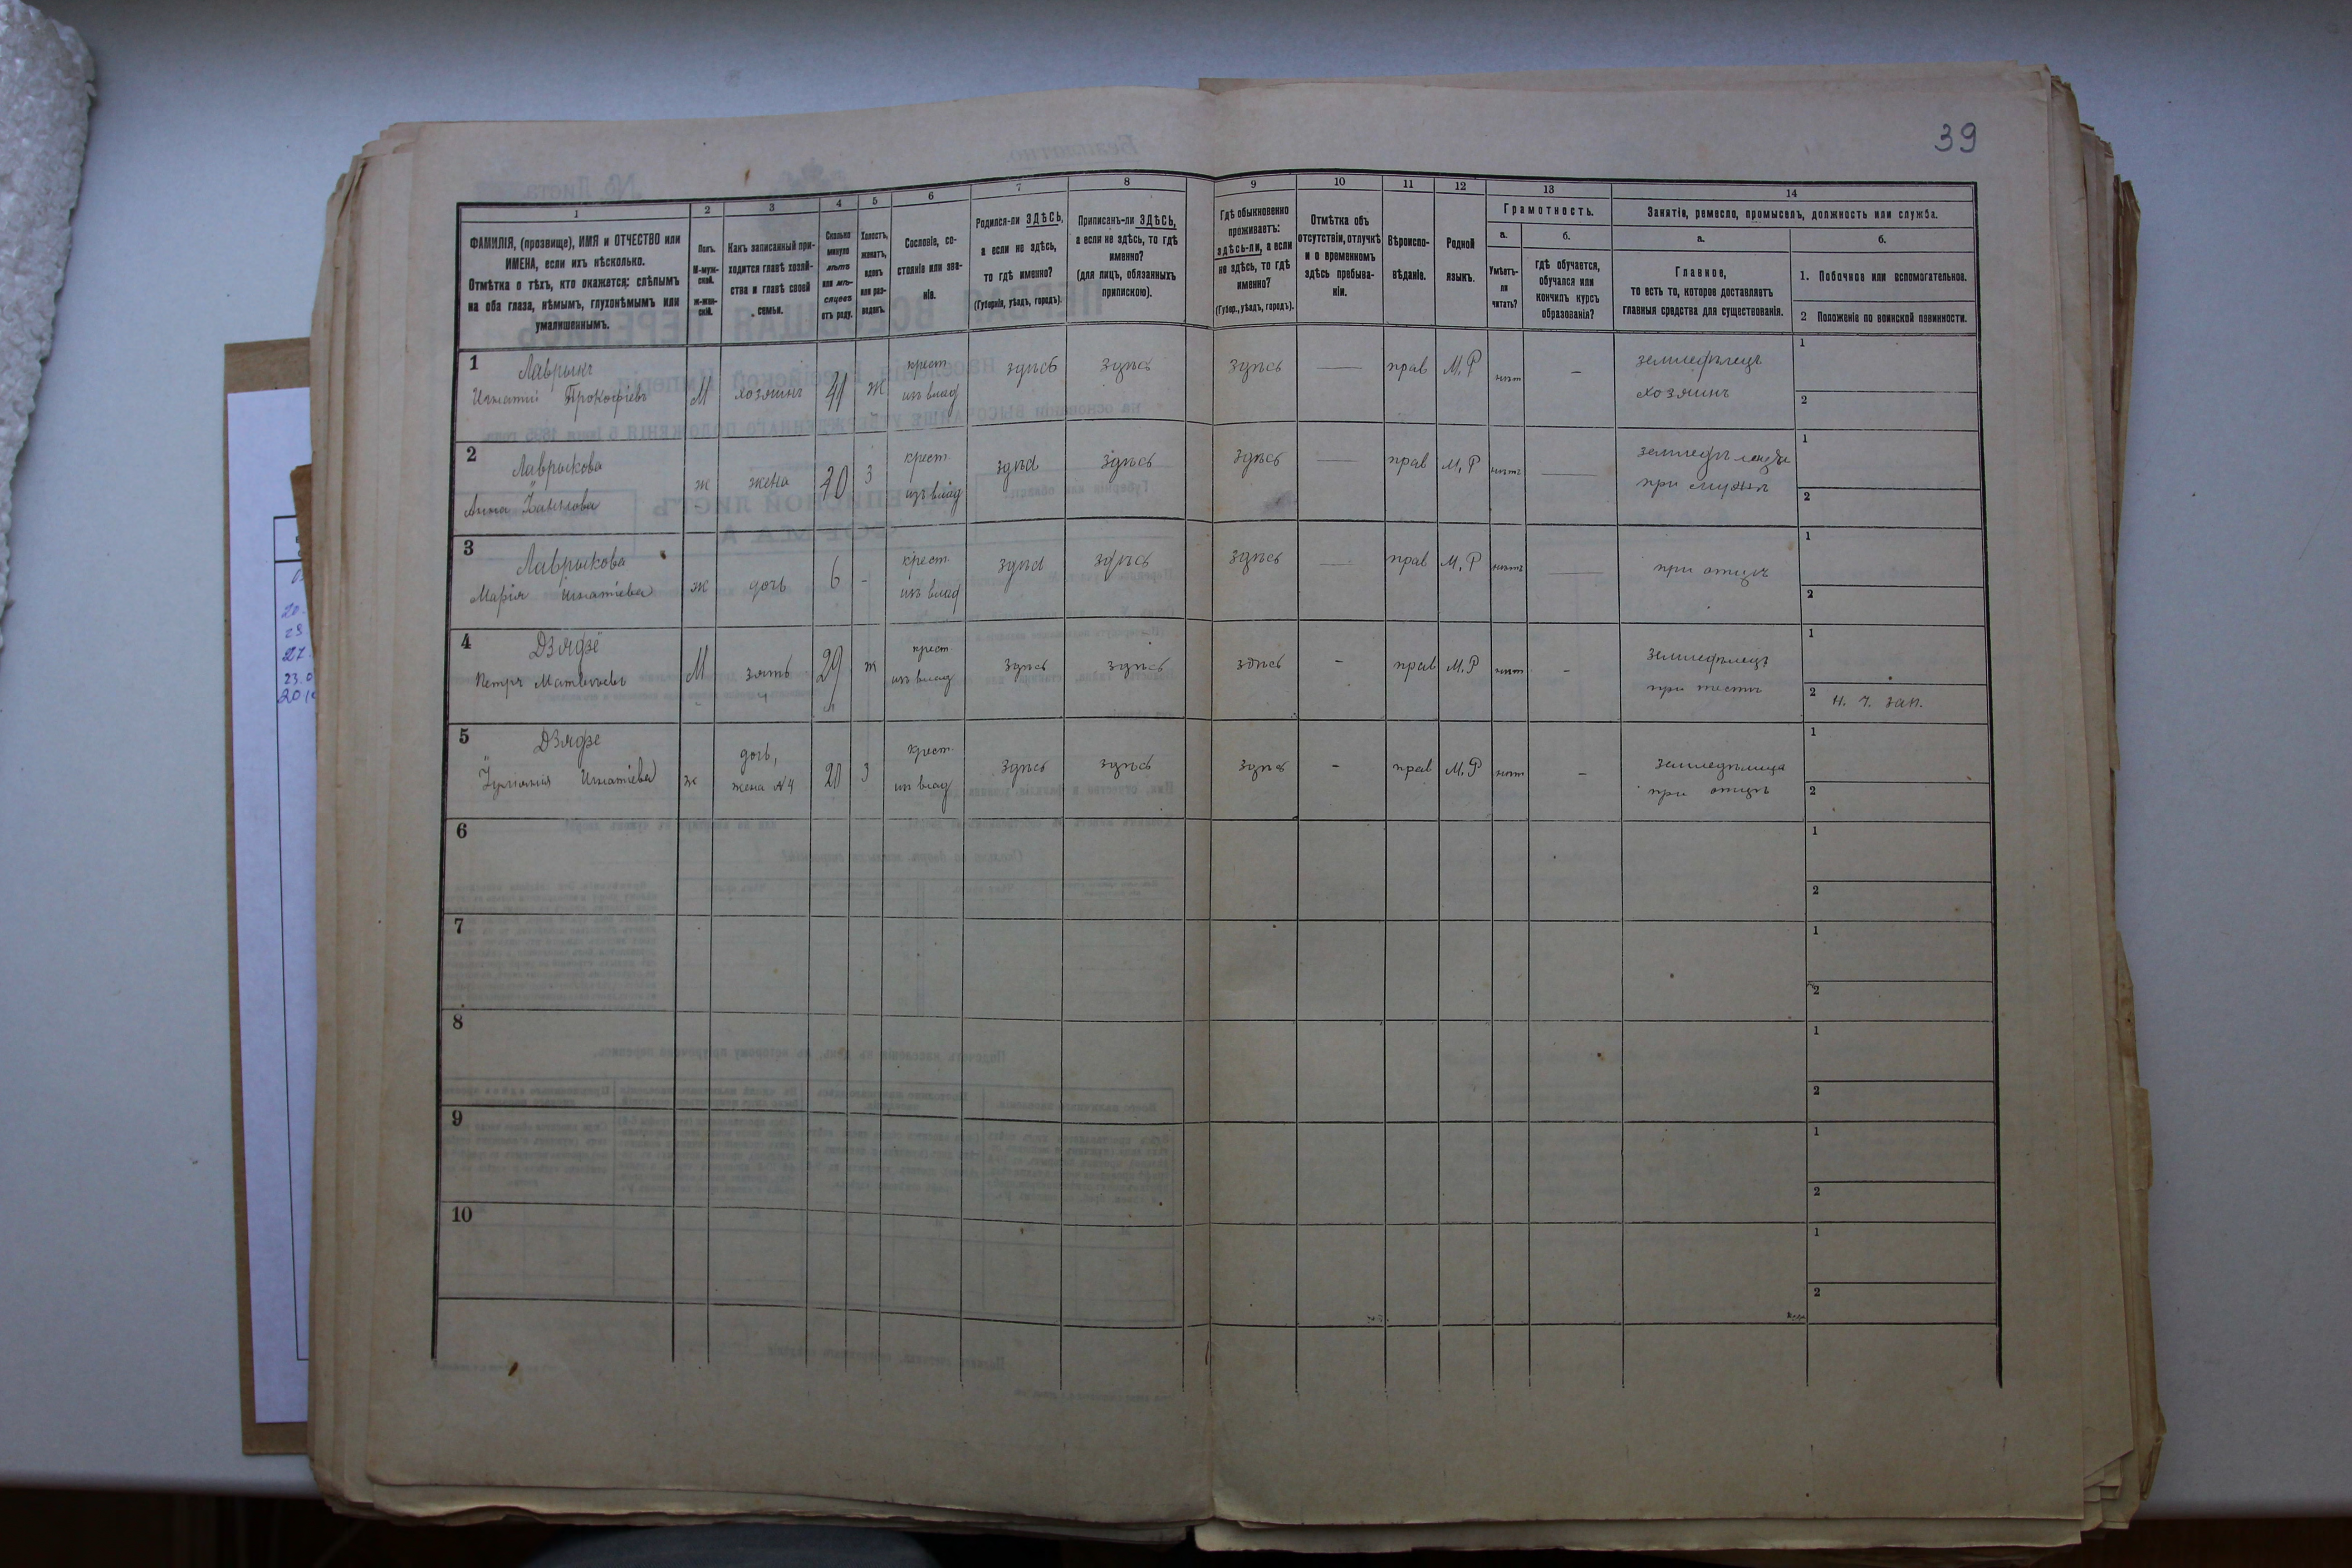 39
1 2 3 4 5 6 7 8 9 10 11 12 13 14
ФАМИЛІЯ, (прозвище), ИМЯ и ОТЧЕСТВО или ИМЕНА, если ихъ нѣсколько.
Отмѣтка о тѣхъ, кто окажется: слѣпымъ на оба глаза, нѣмымъ, глухонѣмымъ или умалишеннымъ.
Полъ.
М-муж-
ской.
Ж-жен-
скій.
Какъ записанный при-
ходится главѣ хозяй-
ства и главѣ своей
семьи.
Сколько
минуло
лѣтъ
или мѣ-
сяцевъ
отъ роду.
Холостъ,
женатъ,
вдовъ
или раз-
веденъ.
Сословіе, со-
стояніе или зва-
ніе.
Родился-ли ЗДѢСЬ,
а если не здѣсь,
то гдѣ именно?
(Губернія, уѣздъ, городъ).
Приписанъ-ли ЗДѢСЬ,
а если не здѣсь, то гдѣ
именно?
(для лицъ, обязанныхъ
припискою).
Гдѣ обыкновенно
проживаетъ:
здѣсь-ли, а если
не здѣсь, то гдѣ
именно?
(Губер., уѣздъ, городъ).
Отмѣтка объ
отсутствіи, отлучкѣ
и о временномъ
здѣсь пребыва-
ніи.
Вѣроиспо-
вѣданіе.
Родной
языкъ.
Грамотность.
а.
Умѣетъ-
ли
читать?
б.
гдѣ обучается,
обучался или
кончилъ курсъ
образованія?
Занятіе, ремесло, промыселъ, должность или служба.
а.
Главное,
то есть то, которое доставляетъ
главныя средства для существованія.
б.
1. Побочное или вспомогательное.
2 Положеніе по воинской повинности.
1 Лаврыкъ
Игнатій Прокофіевъ М хозяинъ 41 ж крест. из влад здѣсь здѣсь здѣсь — прав М.Р нѣт — земледѣлецъ
хозяинъ
1
2
2 Лаврыкова
Анна ж жена 40 з крест. из влад здѣсь здѣсь здѣсь — прав М.Р нѣтъ — при мужѣ
1
2
3 Лаврыкова
Марія Игнатіева ж дочь 6 - крест. из влад здѣсь здѣсь здѣсь — прав М.Р нѣтъ — при отцѣ
1
2
4 Дзядзё
Петръ Матвѣевъ М зять 29 ж крест. из влад здѣсь здѣсь здѣсь - прав М.Р нѣт - земледѣлецъ
при тестѣ
1
2 н. ч. зап.
5 Дзядзе
Игнатіева ж дочь,
жена №4 20 з крест. из влад здѣсь здѣсь здѣсь - прав М.Р нѣт - земледѣлица
при отцѣ
1
2
6
1
2
7
1
2
8
1
2
9
1
2
10
1
2